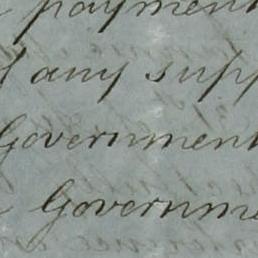 payment
any supp
Government
Governme